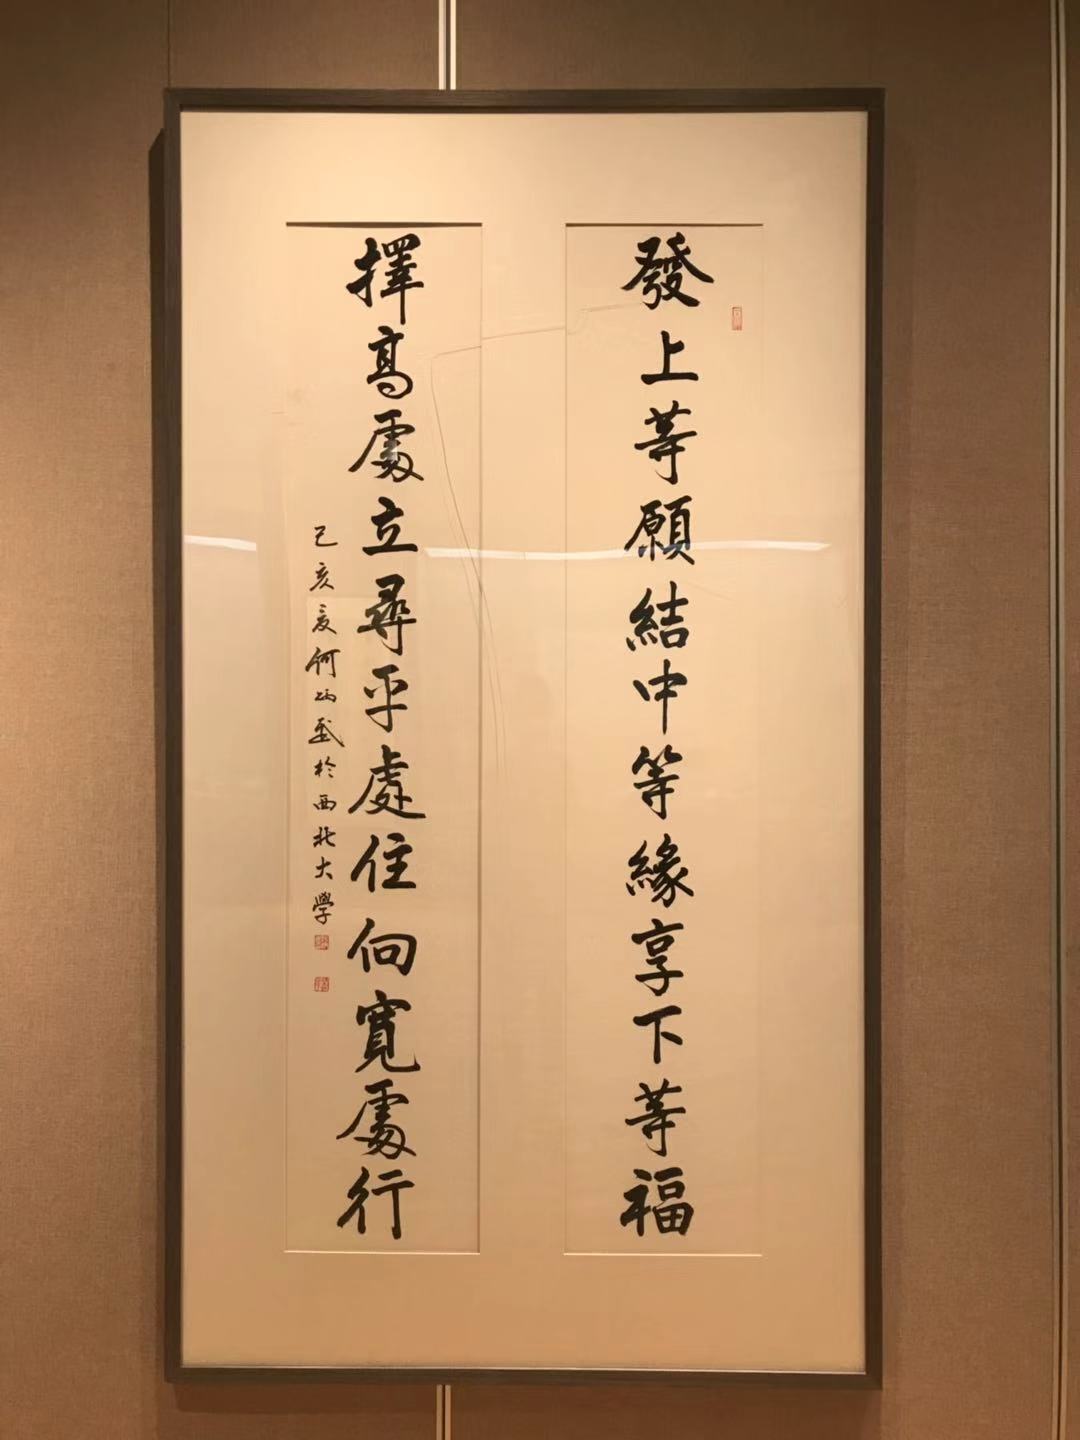 發上等願結中等緣享下等福
擇高處立尋平處住向寬處行
己亥夏何炳武於西北大學